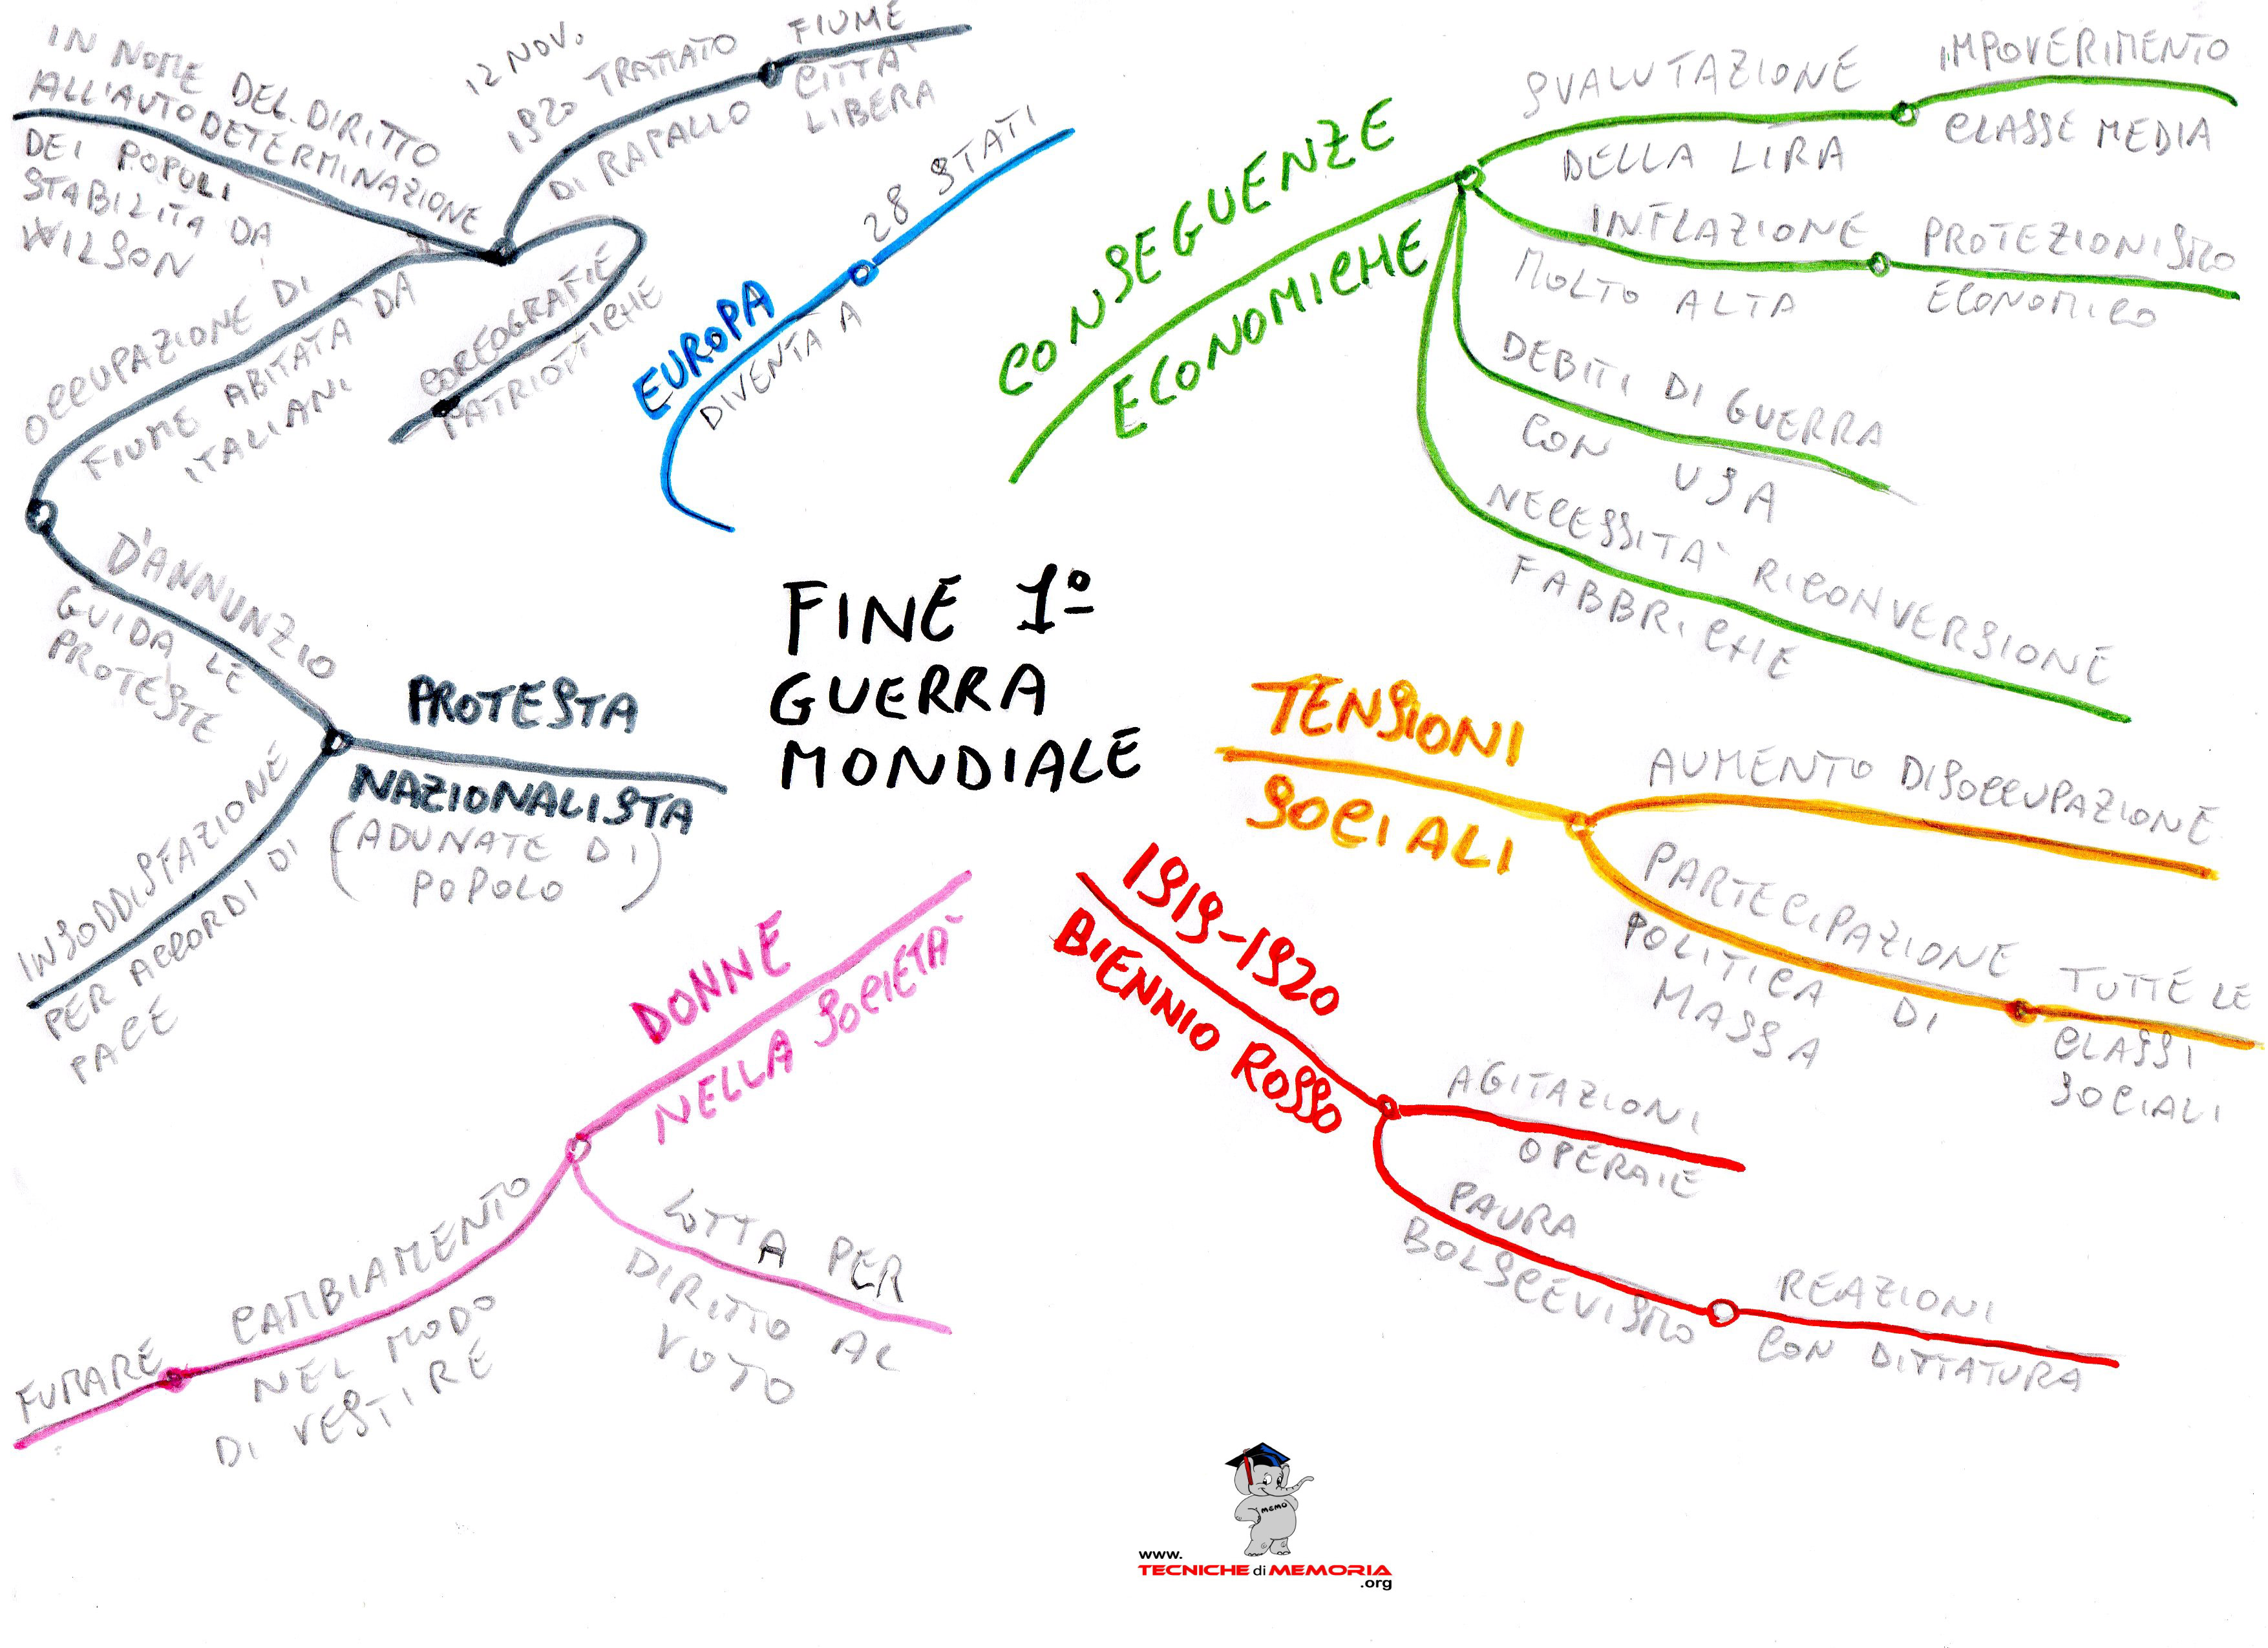 FINE 1º
GUERRA
MONDIALE
CONSEGUENZE
ECONOMICHE
SVALUTAZIONE
DELLA LIRA
IMPOVERIMENTO
CLASSE MEDIA
INFLAZIONE
MOLTO ALTA
PROTEZIONISMO
ECONOMICO
DEBITI DI GUERRA
CON USA
NECESSITÀ RICONVERSIONE
FABBRICHE
TENSIONI
SOCIALI
AUMENTO DISOCCUPAZIONE
PARTECIPAZIONE
POLITICA DI
MASSA
TUTTE LE
CLASSI
SOCIALI
1919-1920
BIENNIO ROSSO
AGITAZIONI
OPERAIE
PAURA
BOLSCEVISMO
REAZIONI
CON DITTATURA
DONNE
NELLA SOCIETÀ
LOTTA PER
DIRITTO AL
VOTO
CAMBIAMENTO
NEL MODO
DI VESTIRE
FUMARE
PROTESTA
NAZIONALISTA
(ADUNATE DI
POPOLO)
INSODDISFAZIONE
PER ACCORDI DI
PACE
D'ANNUNZIO
GUIDA LE
PROTESTE
OCCUPAZIONE DI
FIUME ABITATA DA
ITALIANI
IN NOME DEL DIRITTO
ALL'AUTODETERMINAZIONE
DEI POPOLI
STABILITA DA
WILSON
12 NOV.
1920 TRATTATO
DI RAPALLO
FIUME
CITTÀ
LIBERA
COREOGRAFIE
PATRIOTTICHE
EUROPA
DIVENTA A
28 STATI
MEMO
www.
TECNICHE di MEMORIA
.org